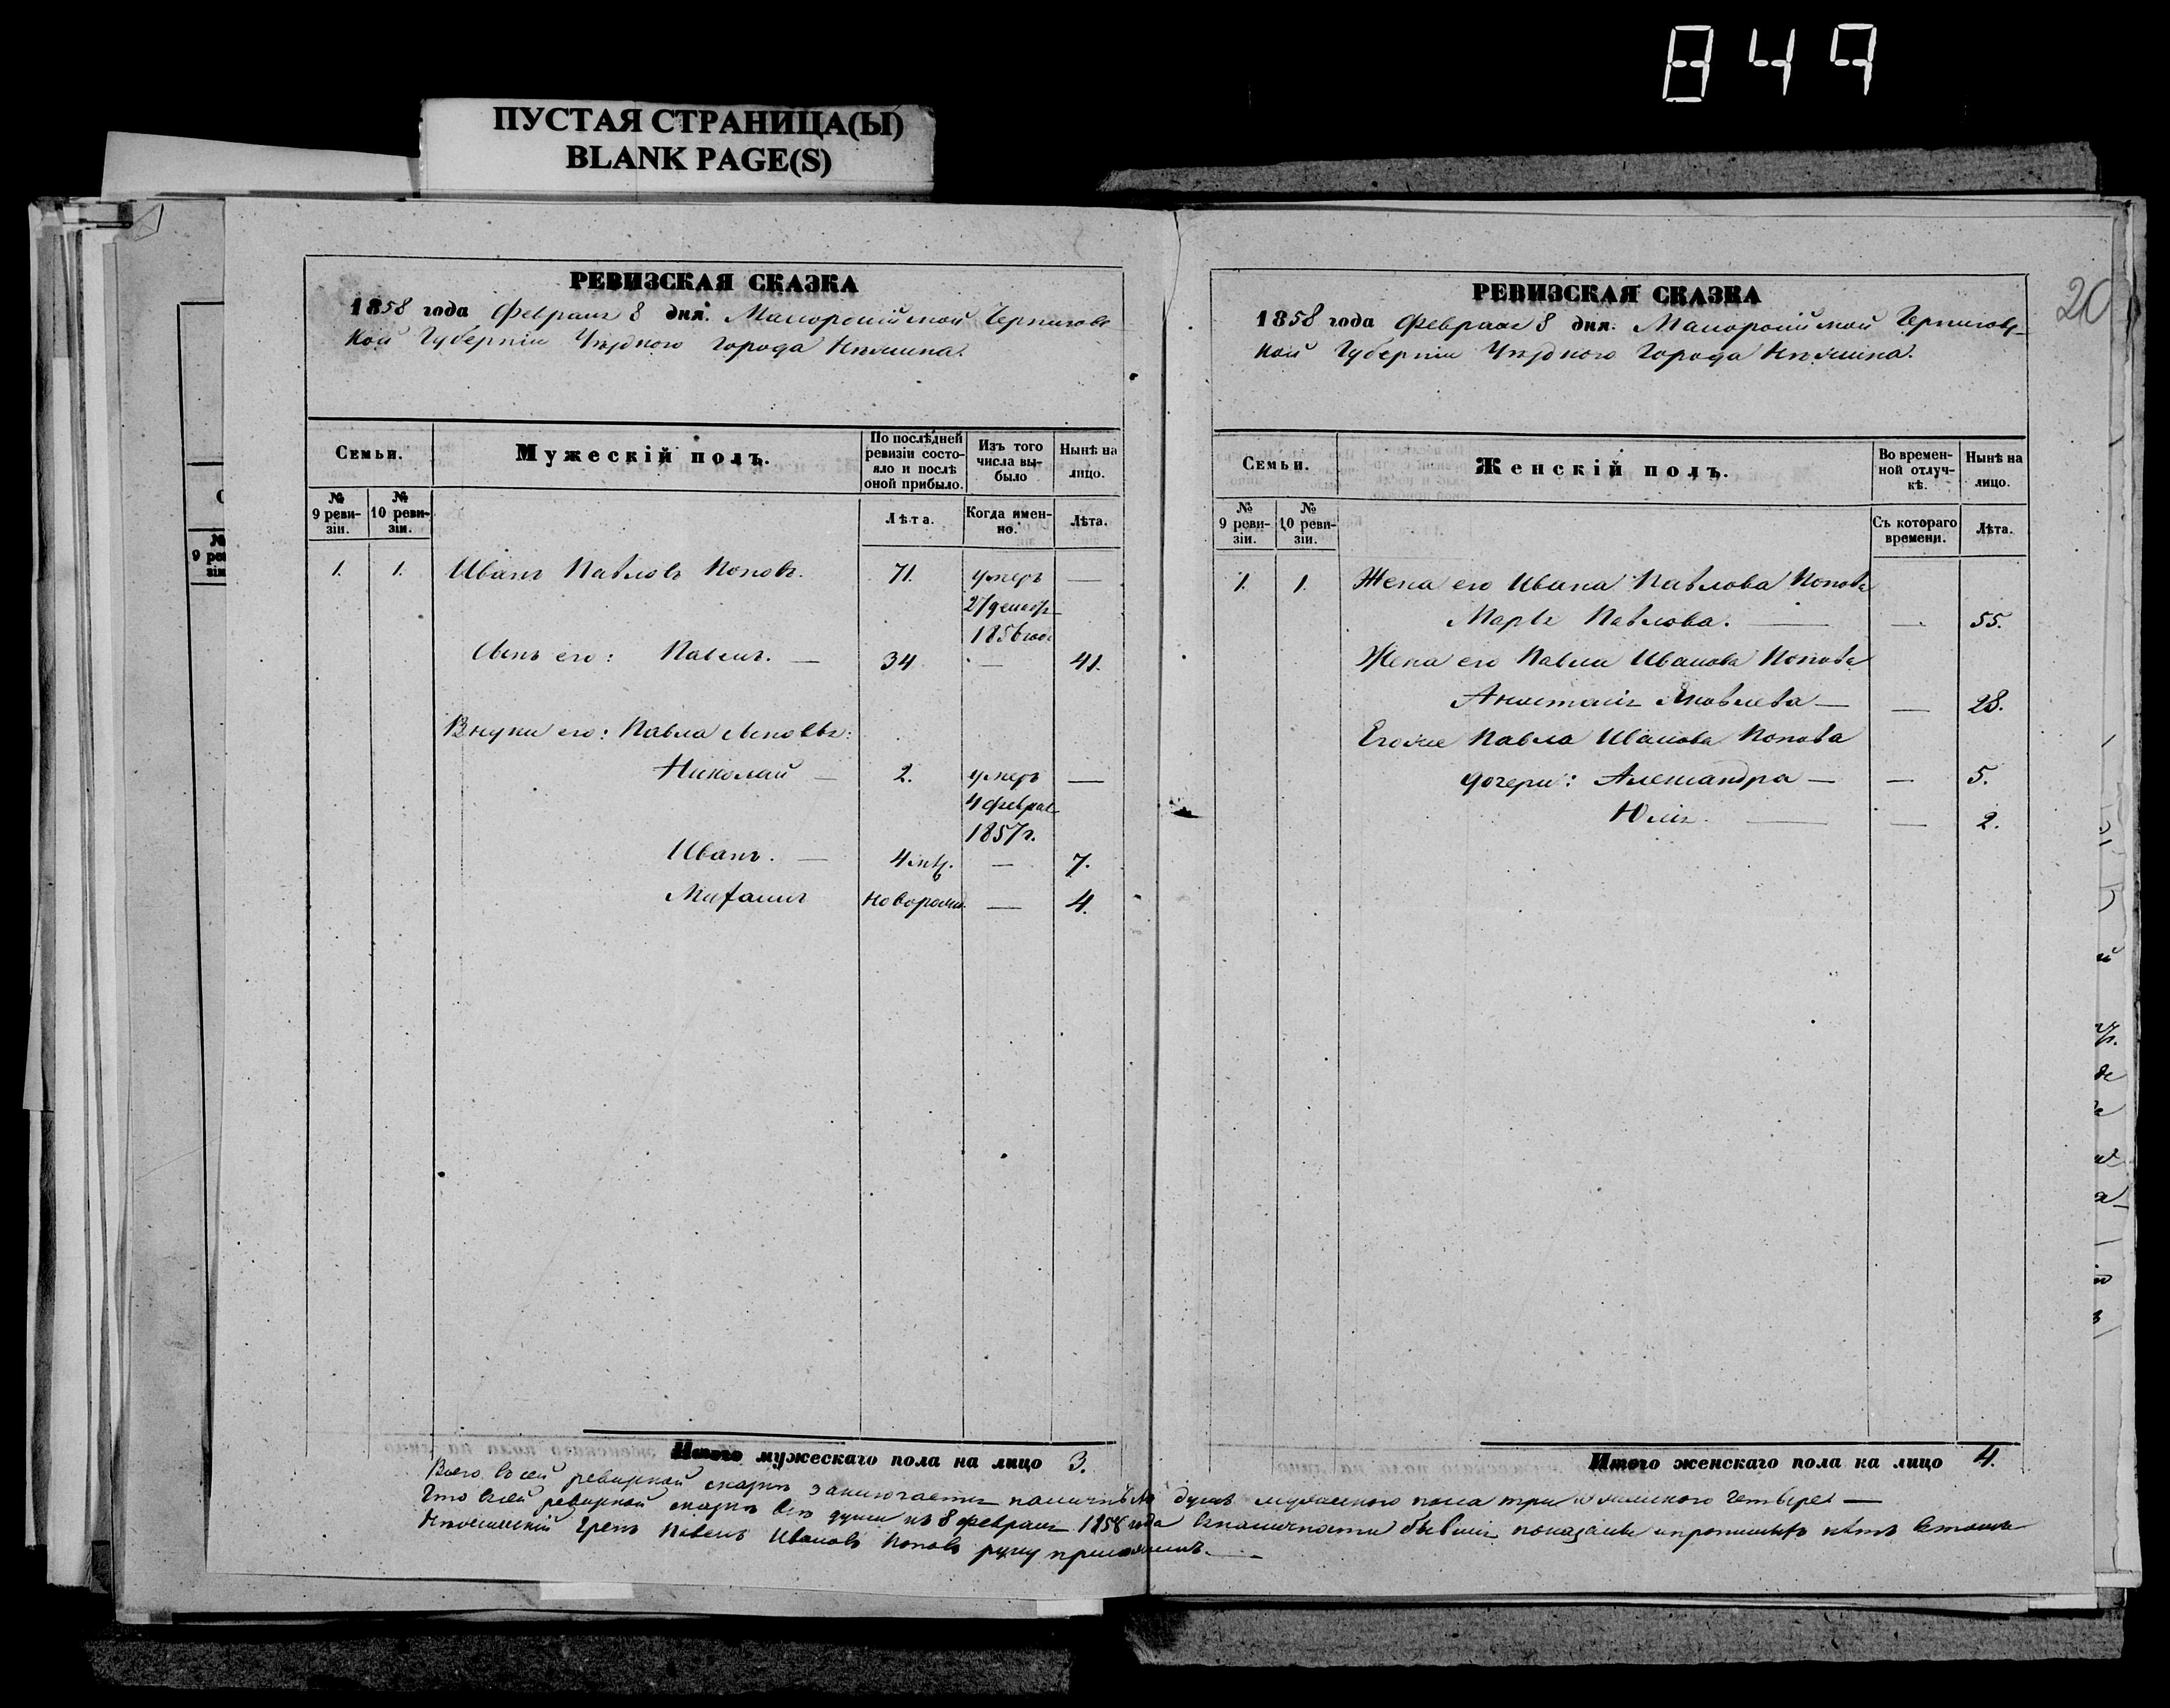 849
ПУСТАЯ СТРАНИЦА(Ы)
BLANK PAGE(S)
20
РЕВИЗСКАЯ СКАЗКА
1858 года Февраля 8 дня. Малоросійской Черниговс
кой Губерніи Уѣзднаго города Нѣжина.
Семьи.
Мужескій полъ.
По послѣдней ревизіи состояло и послѣ оной прибыло.
Изъ того числа выбыло
Нынѣ на лицо.
№ 9 ревизіи.
№ 10 ревизіи.
Лѣта.
Когда именно.
Лѣта.
1. 1. Иванъ Павловъ Поповъ. 71. умеръ —
27 декабр
1856 года
Сынъ его: Павелъ. — 34 — 41.
Внуки его: Павла сыновья:
Николай — 2. умеръ —
4 феврал
1857 г.
Иванъ. — — 7.
Михаилъ новорожд. — 4.
Итого мужескаго пола на лицо 3.
РЕВИЗСКАЯ СКАЗКА
1858 года Февраля 8 дня. Малоросійской Черниговс-
кой Губерніи Уѣзднаго Города Нѣжина.
Семьи.
Женскій полъ.
Во временной отлучкѣ.
Нынѣ на лицо.
№ 9 ревизіи.
№ 10 ревизіи.
Съ котораго времени.
Лѣта.
1. 1. Жена его Ивана Павлова Попова
Марья Павлова. — — 55.
Жена его Павла Иванова Попова
Анастасія Яковлева — — 28.
Егоже Павла Иванова Попова
дочери: Александра — — 5.
Юлія. — — 2.
Итого женскаго пола на лицо 4.
Всего въ сей ревизкой сказкѣ заключается душъ мужескаго пола три и женскаго четыре —
Что въ сей ревизкой сказкѣ всѣ души къ 8 февраля 1858 года въ наличности бывшія показаны и нѣтъ въ томъ
Нѣжинскій Грекъ Павелъ Ивановъ Поповъ руку приложилъ. —